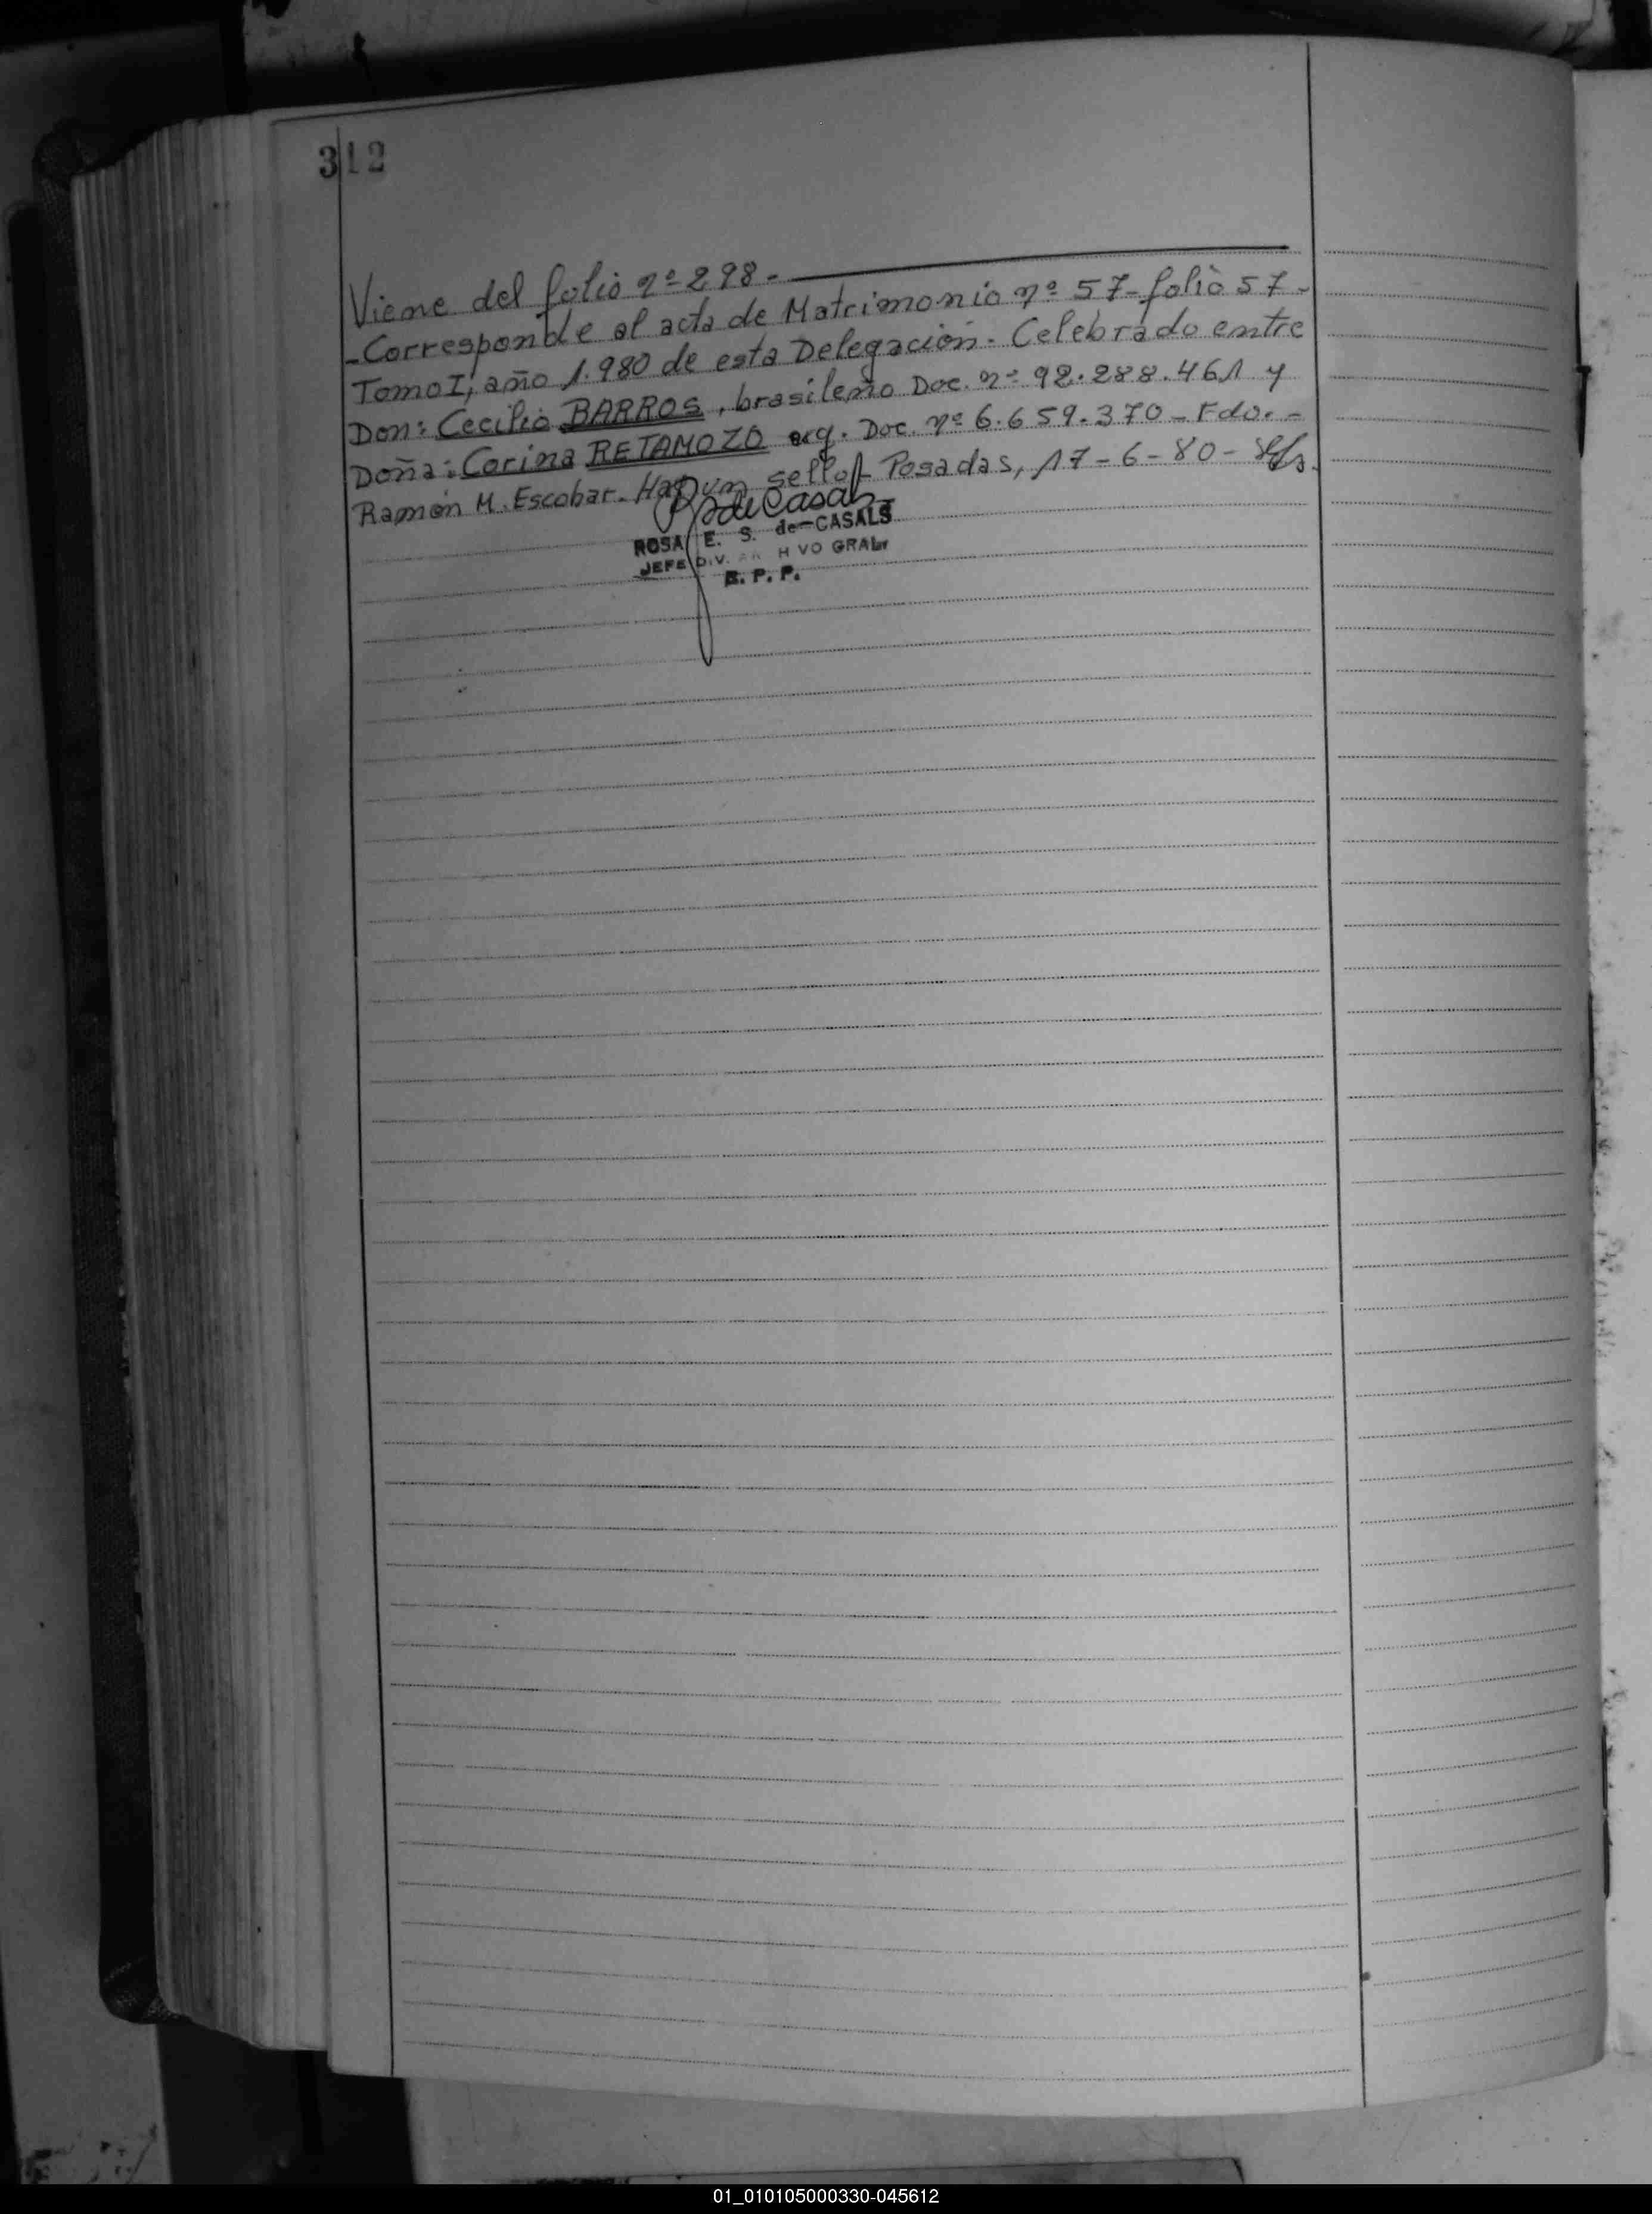 312
Viene del folio nº 298.-
-Corresponde al acta de Matrimonio nº 57-folio 57-
Tomo I, año 1.980 de esta Delegación. Celebrado entre
Don: Cecilio BARROS, brasileño Doc. nº 92.288.461 y
Doña: Corina RETAMOZO arg. Doc. nº 6.659.370- Fdo.-
Ramón M. Escobar. Hay un sello- Posadas, 17-6-80-
de Casals
ROSA E. S. de CASALS
JEFE DIV. AR H VO GRAL
R. P. P.
01_010105000330-045612